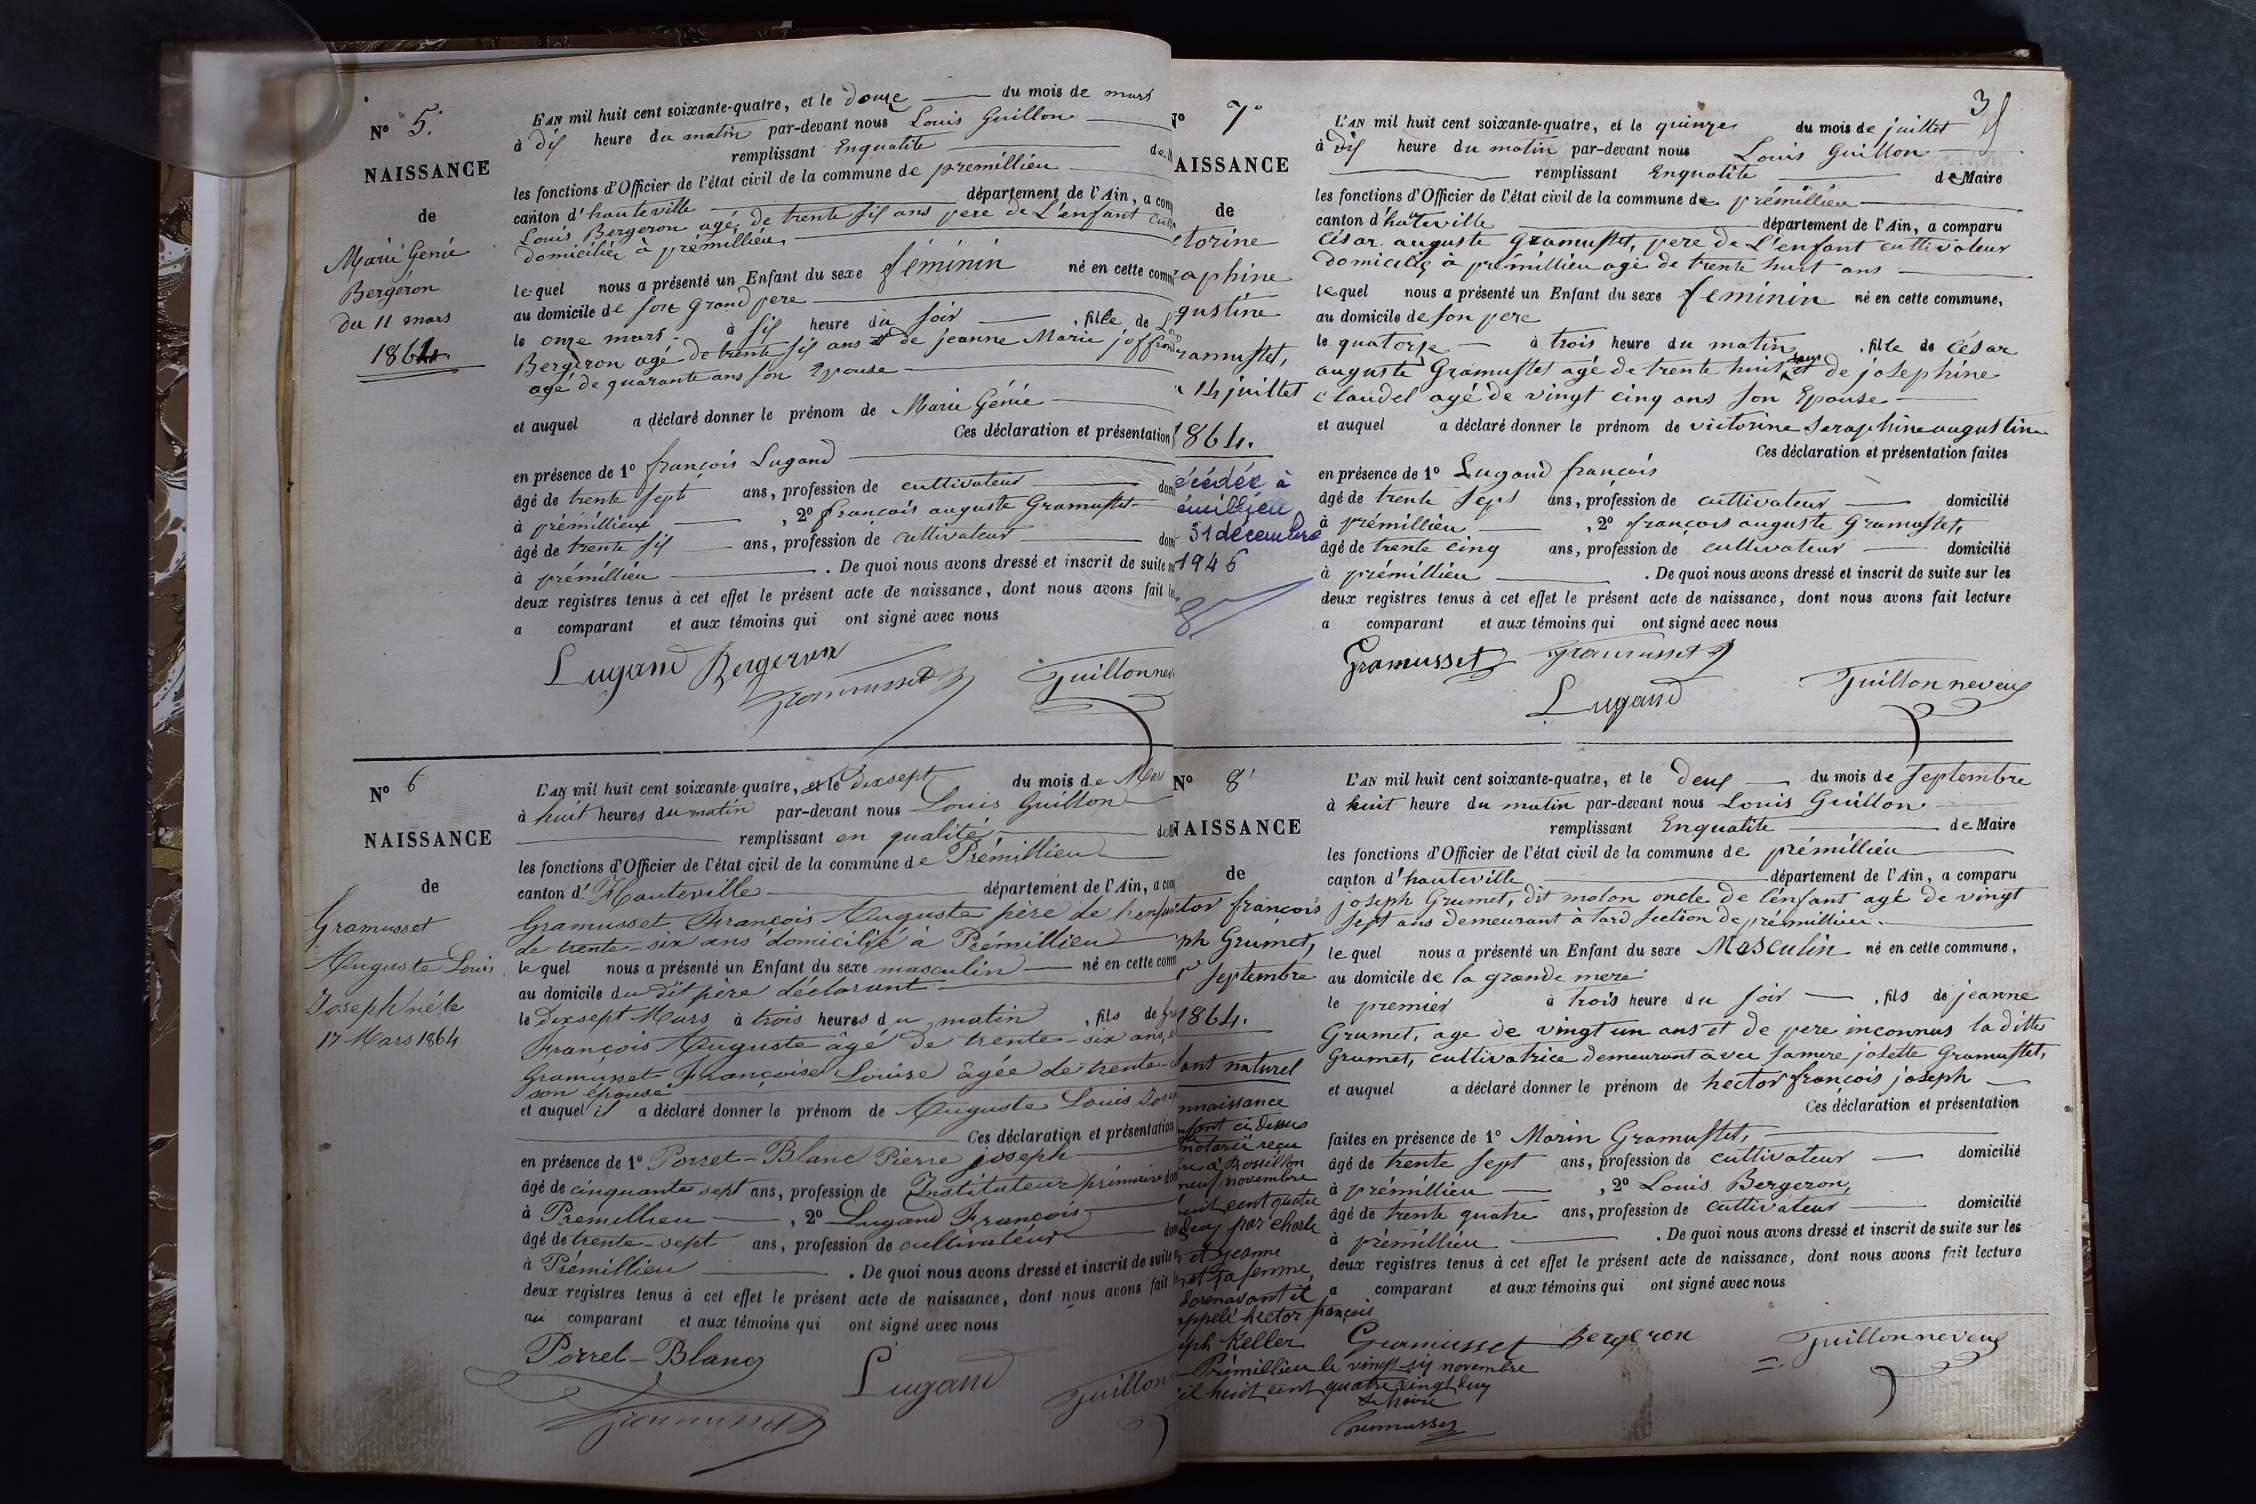 N° 5.
NAISSANCE
de
Marie Génie
Bergeron
du 11 mars
1864.
L'AN mil huit cent soixante-quatre, et le douze du mois de mars
à dix heure du matin par-devant nous Louis Guillon
remplissant Enqualite de
les fonctions d'Officier de l'état civil de la commune de premillieu
canton d'hauteville département de l'Ain, a
Louis Bergeron agé de trente six ans pere de L'enfant
domicilié à prémillieu
lequel nous a présenté un Enfant du sexe féminin né en cette
au domicile de son grand pere
le onze mars à six heure du soir, fille de
Bergeron agé de trente six ans et de jeanne Marie
agé de quarante ans son Epouse
et auquel a déclaré donner le prénom de Marie Génie
Ces déclaration et présentation
en présence de 1° françois Lugand
âgé de trente sept ans, profession de cultivateur
à prémillieux, 2° françois auguste Gramusset
âgé de trente six ans, profession de cultivateur
à prémillieu. De quoi nous avons dressé et inscrit de suite
deux registres tenus à cet effet le présent acte de naissance, dont nous avons fait
a comparant et aux témoins qui ont signé avec nous
Lugand Bergeron
Gramusset Guillon
N° 6
NAISSANCE
de
Gramusset
Auguste Louis
Joseph né le
17 Mars 1864
L'AN mil huit cent soixante-quatre, et le dixsept du mois de Mars
à huit heures du matin par-devant nous Louis Guillon
remplissant en qualité
les fonctions d'Officier de l'état civil de la commune de Prémillieu
canton d'Hauteville département de l'Ain, a
Gramusset François Auguste père de l'enfant
de trente-six ans domicilié à Prémillieu
lequel nous a présenté un Enfant du sexe masculin né en cette
au domicile du dit père déclarant
le dixsept Mars à trois heures du matin, fils de
François Auguste âgé de trente-six ans,
Gramusset Françoise Louise âgée de trente-
son épouse
et auquel il a déclaré donner le prénom de Auguste Louis
Ces déclaration et présentation
en présence de 1° Porret-Blanc Pierre joseph
âgé de cinquante sept ans, profession de Instituteur primaire
à Prémillieu, 2° Lugand François
âgé de trente-sept ans, profession de cultivateur
à Prémillieu. De quoi nous avons dressé et inscrit de suite
deux registres tenus à cet effet le présent acte de naissance, dont nous avons fait
au comparant et aux témoins qui ont signé avec nous
Porret-Blanc
Lugand
Guillon
Gramusset
3
7°
AISSANCE
de
torine
raphine
gustine
ramusset,
14 juillet
1864.
écédée à
émillieu
31 décembre
1946
L'AN mil huit cent soixante-quatre, et le quinze du mois de juillet
à dix heure du matin par-devant nous Louis Guillon
remplissant Enqualite de Maire
les fonctions d'Officier de l'état civil de la commune de prémillieu
canton d'hateville département de l'Ain, a comparu
César auguste Gramusset, pere de L'enfant cultivateur
domicilié à prémillieu agé de trente huit ans
lequel nous a présenté un Enfant du sexe feminin né en cette commune,
au domicile de son pere
le quatorze à trois heure du matin, fille de César
auguste Gramusset agé de trente huit ans et de joséphine
claudel agé de vingt cinq ans son Epouse
et auquel a déclaré donner le prénom de victorine Seraphine augustine
Ces déclaration et présentation faites
en présence de 1° Lugand françois
âgé de trente sept ans, profession de cultivateur domicilié
à prémillieu, 2° françois auguste Gramusset,
âgé de trente cinq ans, profession de cultivateur domicilié
à prémillieu. De quoi nous avons dressé et inscrit de suite sur les
deux registres tenus à cet effet le présent acte de naissance, dont nous avons fait lecture
a comparant et aux témoins qui ont signé avec nous
Gramusset Gramusset
Lugand Guillon neveu
N° 8
NAISSANCE
de
tor françois
ph Grumet,
septembre
1864.
ant naturel
nnaissance
nfant ci dessus
notarié reçu
à Rossillon
neuf novembre
huit cent quatre
deux par charle
et jeanne
et sa femme,
dorenavant il
appelé hector françois
ph Keller
Prémillieu le vingt-six novembre
il huit cent quatre vingt deux
Le Maire
Gramusset
L'AN mil huit cent soixante-quatre, et le deux du mois de septembre
à huit heure du matin par-devant nous Louis Guillon
remplissant Enqualite de Maire
les fonctions d'Officier de l'état civil de la commune de prémillieu
canton d'hauteville département de l'Ain, a comparu
joseph Grumet, dit molon oncle de l'enfant agé de vingt
sept ans demeurant à tard section de prémillieu
lequel nous a présenté un Enfant du sexe Masculin né en cette commune,
au domicile de la grande mere
le premier à trois heure du soir, fils de jeanne
Grumet, age de vingt un ans et de pere inconnus la ditte
Grumet, cultivatrice demeurant avec sa mere josette Gramusset,
et auquel a déclaré donner le prénom de hector françois joseph
Ces déclaration et présentation
faites en présence de 1° Marin Gramusset,
âgé de trente sept ans, profession de cultivateur domicilié
à prémillieu, 2° Louis Bergeron,
âgé de trente quatre ans, profession de cultivateur domicilié
à prémillieu. De quoi nous avons dressé et inscrit de suite sur les
deux registres tenus à cet effet le présent acte de naissance, dont nous avons fait lecture
a comparant et aux témoins qui ont signé avec nous
Gramusset Bergeron Guillon neveu